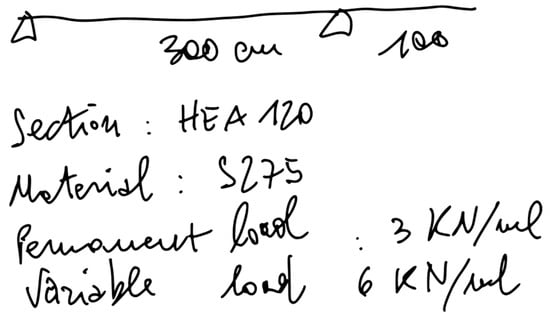 300 cm 100
Section : HEA 120
Material : S275
Permanent load : 3 KN/ml
Variable load 6 KN/ml